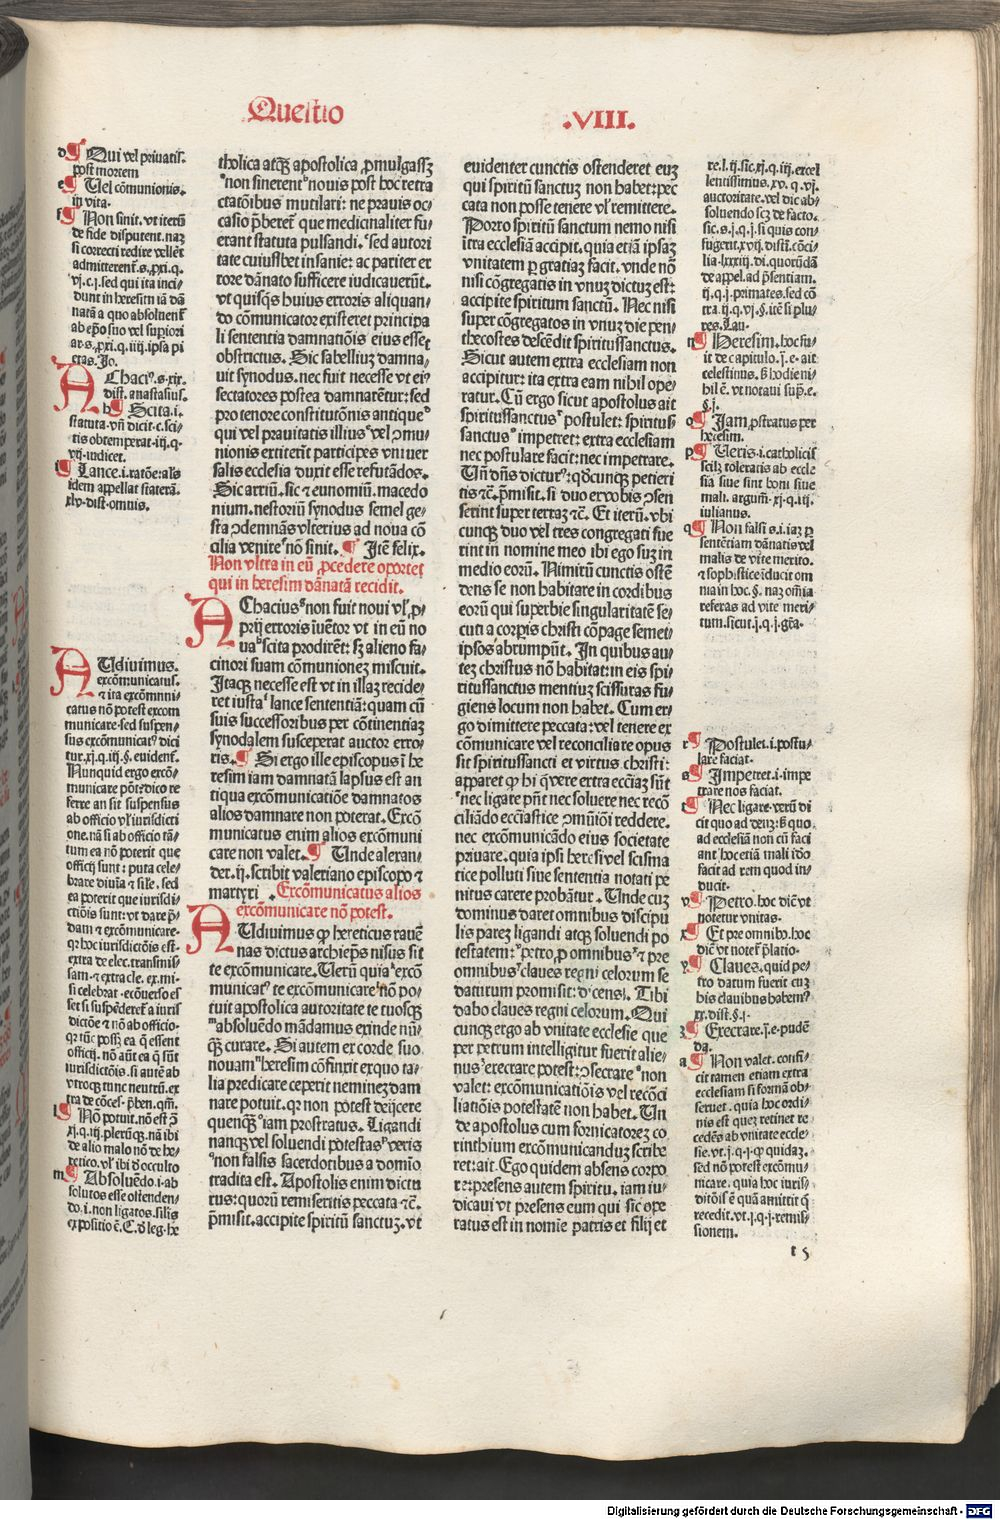 Questio .VIII.
d ¶ Qui vel priuatis.
post mortem
e ¶ Uel cōmunionis.
in vita.
f ¶ Non sinit. vt iterū
de fide disputent. naȝ
si correcti redire vellēt
dunt in heresim iā dā
ab ep̄o suo vel supiori
Achaciꝰ.s.xix.
dist. anastasius.
h ¶ Scita.i.
statuta. vn̄ dicit c. sci-
tis obtemperat. iij.q.
vij. iudicet.
i ¶ Lance.i. ratōe: als
idem appellat staterā.
xlv. dist. omnis.
Audiuimus.
excōmunicatus.
catus nō potest excom
municare. sed suspen-
sus excōmunicatꝰ dici
Nunquid ergo excō-
ferre an sit suspensus
ab officio vl iurisdicti
one. nā si ab officio tā-
tum ea nō poterit que
officij sunt: puta cele-
brare diuīa ⁊ sile. sed
ea poterit que iurisdi-
extra de elec. transmis-
si celebrat. ecōuerso es
dictōe ⁊ nō ab officio.
officij. nō aūt ea q̄ sūt
iurisdictōis. si autē ab
vtroqȝ tunc neutrū. ex
l ¶ Nō potuit. nō est ꝯ̄
xj.q.iij. plerūqȝ. nā ibi
de alio malo nō de he-
retico. vl ibi d̓ occulto
m ¶ Absoluēdo.i. ab-
solutos esse ostenden-
do.i. non ligatos. silis
expositio ē. C. d̓ leg. he
tholica atqȝ apostolica ꝓmulgassȝ
non sinerent nouis post hoc retra
ctatōibus mutilari: ne prauis oc-
casio p̄beret que medicinaliter fu-
erant statuta pulsandi. sed autori
tate cuiuslbet insanie: ac pariter er
rore dānato sufficere iudicauerūt.
vt quisqȝ huius erroris aliquan-
do cōmunicator existeret principa
li sententia damnatōis eius esset
obstrictus. Sic sabellium damna-
uit synodus. nec fuit necesse vt eiꝰ
sectatores postea damnarētur: sed
pro tenore constitutōnis antiqueᵒ
qui vel prauitatis illius vel ꝯmu-
nionis extiterūt participes vniuer
salis ecclesia duxit esse refutādos.
Sic arriū. sic ⁊ eunomiū. macedo
nium. nestoriū synodus semel ge-
sta ꝯdemnās vlterius ad noua cō
cilia venire nō sinit. ¶ Itē felix.
Non vltra in eū ꝓcedere oportet
qui in heresim dānatā recidit.
Achacius non fuit noui vl ꝓ-
prij erroris īuētor vt in eū no
ua scita prodirēt: sȝ alieno fa-
cinori suam cōmunioneȝ miscuit.
Itaqȝ necesse est vt in illaȝ recide-
ret iusta lance sententiā: quam cū
suis successoribus per cōtinentiaȝ
synodalem susceperat auctor erro-
ris. ¶ Si ergo ille episcopus ī he
resim iam damnatā lapsus est an
tiqua excōmunicatiōe damnatos
alios damnare non poterat. Excō
municatus enim alios excōmuni
care non valet. ¶ Unde alexan-
der. ij. scribit valeriano episcopo ⁊
martyri. Excōmunicatus alios
excōmunicare nō potest.
Audiuimus ꝙ hereticus rauē
nas dictus archiep̄s nisus sit
te excōmunicare. Uerū quia excō
municatꝰ te excōmunicare nō po-
tuit apostolica autoritate te tuosqȝ
absoluēdo mādamus exinde nū-
q̄ȝ curare. Si autem ex corde suo
nouam heresim cōfinxit exquo ta-
lia predicare ceperit nemineȝ dam
nare potuit. qr̄ non potest deijcere
quenqȝ iam prostratus. Ligandi
nanqȝ vel soluendi potestas veris
non falsis sacerdotibus a domīo
tradita est. Apostolis enim dictu
rus: quorū remiseritis peccata ⁊c̄.
p̄misit. accipite spiritū sanctuȝ. vt
euidenter cunctis ostenderet euȝ
qui spiritū sanctuȝ non habet: pec
cata non posse tenere vl remittere.
Porro spiritū sanctum nemo nisi
ītra ecclesiā accipit. quia etiā ipsaȝ
vnitatem ꝑ gratiaȝ facit. vnde nō
nisi cōgregatis in vnuȝ dictuȝ est:
accipite spiritum sanctū. Nec nisi
super cōgregatos in vnuȝ die pen-
thecostes descēdit spiritussanctus.
Sicut autem extra ecclesiam non
accipitur: ita extra eam nihil ope-
ratur. Cū ergo sicut apostolus ait
spiritussanctus postulet: spiritus-
sanctus impetret: extra ecclesiam
nec postulare facit: nec impetrare.
Un̄ dn̄s dicturꝰ: qd̄cunqȝ petieri
tis ⁊c̄. p̄misit. si duo ex vobis ꝯsen
serint super terraȝ ⁊c̄. Et iterū. vbi
cunqȝ duo vel tres congregati fue
rint in nomine meo ibi ego suȝ in
medio eorū. Nimirū cunctis ostē
dens se non habitare in cordibus
eorū qui superbie singularitatē se-
cuti a corp̄is christi cōpage semet-
ipsos abrumpūt. In quibus au-
teȝ christus nō habitat: in eis spi-
ritussanctus mentiuȝ scissuras fu-
giens locum non habet. Cum er-
go dimittere peccata: vel tenere ex
cōmunicare vel reconciliare opus
sit spiritussancti et virtus christi:
apparet ꝙ hi q̄ vere extra eccl̄iaȝ sūt
nec ligare pn̄t nec soluere nec recō
ciliādo eccl̄iastice ꝯmuniōi reddere.
nec excōmunicādo eius societate
priuare. quia ipsi heresi vel scisma
tice polluti siue sententia notati pe
nitus carere probātur. Unde cuȝ
dominus daret omnibus discipu
lis pareȝ ligandi atqȝ soluendi po
testatem: petro ꝓ omnibus ⁊ pre
omnibus claues regni celorum se
daturum promisit: dicens. Tibi
dabo claues regni celorum. Qui
cunqȝ ergo ab vnitate ecclesie que
per petrum intelligitur fuerit alie-
nus execrare potest: ꝯsecrare non
valet: excōmunicatiōis vel recōci
liatiōis potestatē non habet. Un
de apostolus cum fornicatoreȝ co
rinthium excōmunicanduȝ scribe
ret: ait. Ego quidem absens corpo
re: presens autem spiritu. iam iu-
dicaui vt presens eum qui sic ope
ratus est in nomīe patris et filij et
lentissimus. xv. q. vj.
auctoritate. vel dic ab-
soluendo scȝ de facto.
sic.s.j.q.j. si quis con-
fugerit. xvij. dist. cōci-
lia. lxxxiij. di. quorūdā
de appel. ad p̄sentiam.
ij.q.j. primates. sed cō
tra. ij.q.vj.§. itē si plu-
res. Lau.
n ¶ Heresim. hoc fu-
it de capitulo.j.e. ait
celestinus. ß hodie ni-
hil ē. vt notaui sup̄.e.
§.j.
o ¶ Iam ꝓstratus per
heresim.
p ¶ Ueris.i. catholicis
scilȝ toleratis ab eccle
sia siue sint boni siue
mali. argum̄. xj.q.iij.
iulianus.
q ¶ Non falsi s.i. iaȝ ꝑ
sentētiam dānatis vel
malis de vite merito.
⁊ sophistice īducit om
nia in hoc.§. naȝ om̄ia
referas ad vite meri-
tum. sicut.j.q.j. gr̄a.
r ¶ Postulet.i. postu-
lare faciat.
s ¶ Impetret.i. impe
trare nos faciat.
t ¶ Nec ligare. verū di
cit quo ad deuȝ: ß quo
ad ecclesiā non cū faci
ant hoc etiā mali id̓o
facit ad rem quod in-
ducit.
v ¶ Petro. hoc diē vt
notetur vnitas.
x ¶ Et pre omnibꝰ. hoc
dicit vt notet̄ p̄latio.
y ¶ Claues. quid pe-
tro datum fuerit cuȝ
his clauibus habemꝰ
xx. dist.§.j.
z ¶ Execrare.j.e. pudē
da.
a ¶ Non valet. confi-
cit tamen etiam extra
ecclesiam si formā ob-
seruet. quia hoc ordi-
nis est queȝ retinet re
cedēs ab vnitate eccle-
sie. vt.j.q.j.ꝙ quidaȝ.
sed nō potest excōmu-
nicare. quia hoc iuris-
ditōis ē quā amittit q̄
recedit. vt.j.q.j. remis-
sionem.
t 5
Digitalisierung gefördert durch die Deutsche Forschungsgemeinschaft - DFG